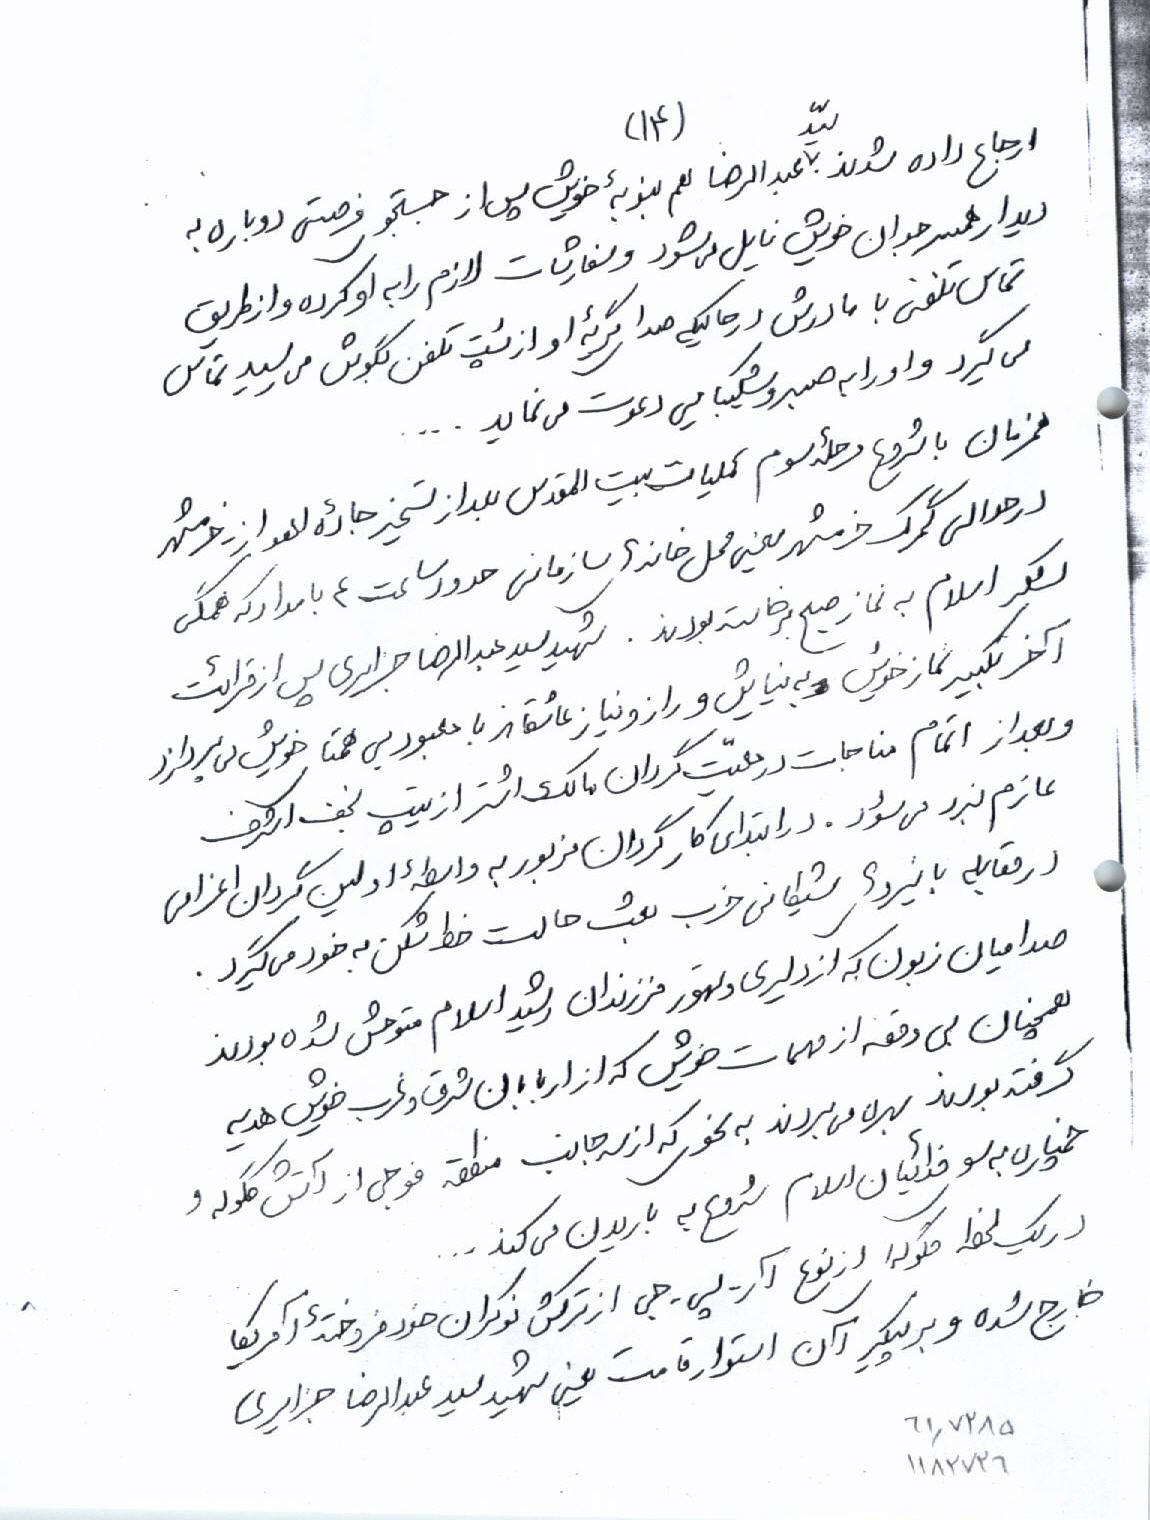 (۱۴)
ارجاع داده شدند. سیّد عبدالرضا هم بنوبهٔ خویش پس از جستجو فرصتی دوباره به
دیدار همسر جوان خویش نایل می‌شود و سفارشات لازم را به او کرده و از طریق
تماس تلفنی با مادرش در حالیکه صدا گریهٔ او از پشت تلفن بگوش می‌رسید تماس
می‌گیرد و او را به صبر و شکیبایی دعوت می‌نماید ....
همزمان با شروع مرحلهٔ سوم عملیات بیت المقدس بعد از تسخیر جادهٔ اهواز - خرمشهر
در حوالی گمرک خرمشهر یعنی محل خانه‌های سازمانی حدود ساعت ۴ بامداد که همگی
لشکر اسلام به نماز صبح برخاسته بودند. شهید سید عبدالرضا جزایری پس از قرائت
آخر تکبیر نماز خویش به نیایش و راز و نیاز عاشقانه با معبود بی همتا خویش می‌پردازد
و بعد از اتمام مناجات در معیّت گردان مالک اشتر از تیپ نجف اشرف
عازم نبرد می‌شود. در ابتدای کار گردان مزبور به واسطهٔ اولین گردان اعزامی
در مقابله با نیروی شیطانی حزب بعث حالت خط شکن به خود می‌گیرد.
صدامیان زبون که از دلیری و تهور فرزندان رشید اسلام متوحش شده بودند
همچنان بی وقفه از مهمات خویش که از اربابان شرق و غرب خویش هدیه
گرفته بودند بهره می‌بردند به نحوی که از سه جانب منطقه فوجی از آتش گلوله و
خمپاره به سو فدائیان اسلام شروع به باریدن می‌کند ...
در یک لحظه گلوله‌ای از نوع آر-پی-جی از ترکش نوکران خود فروختهٔ آمریکا
خارج شده و بر پیکر آن استوار قامت یعنی شهید سید عبدالرضا جزایری
۶۱٫۷۲۸۵
۱۱۸۲۷۲۶